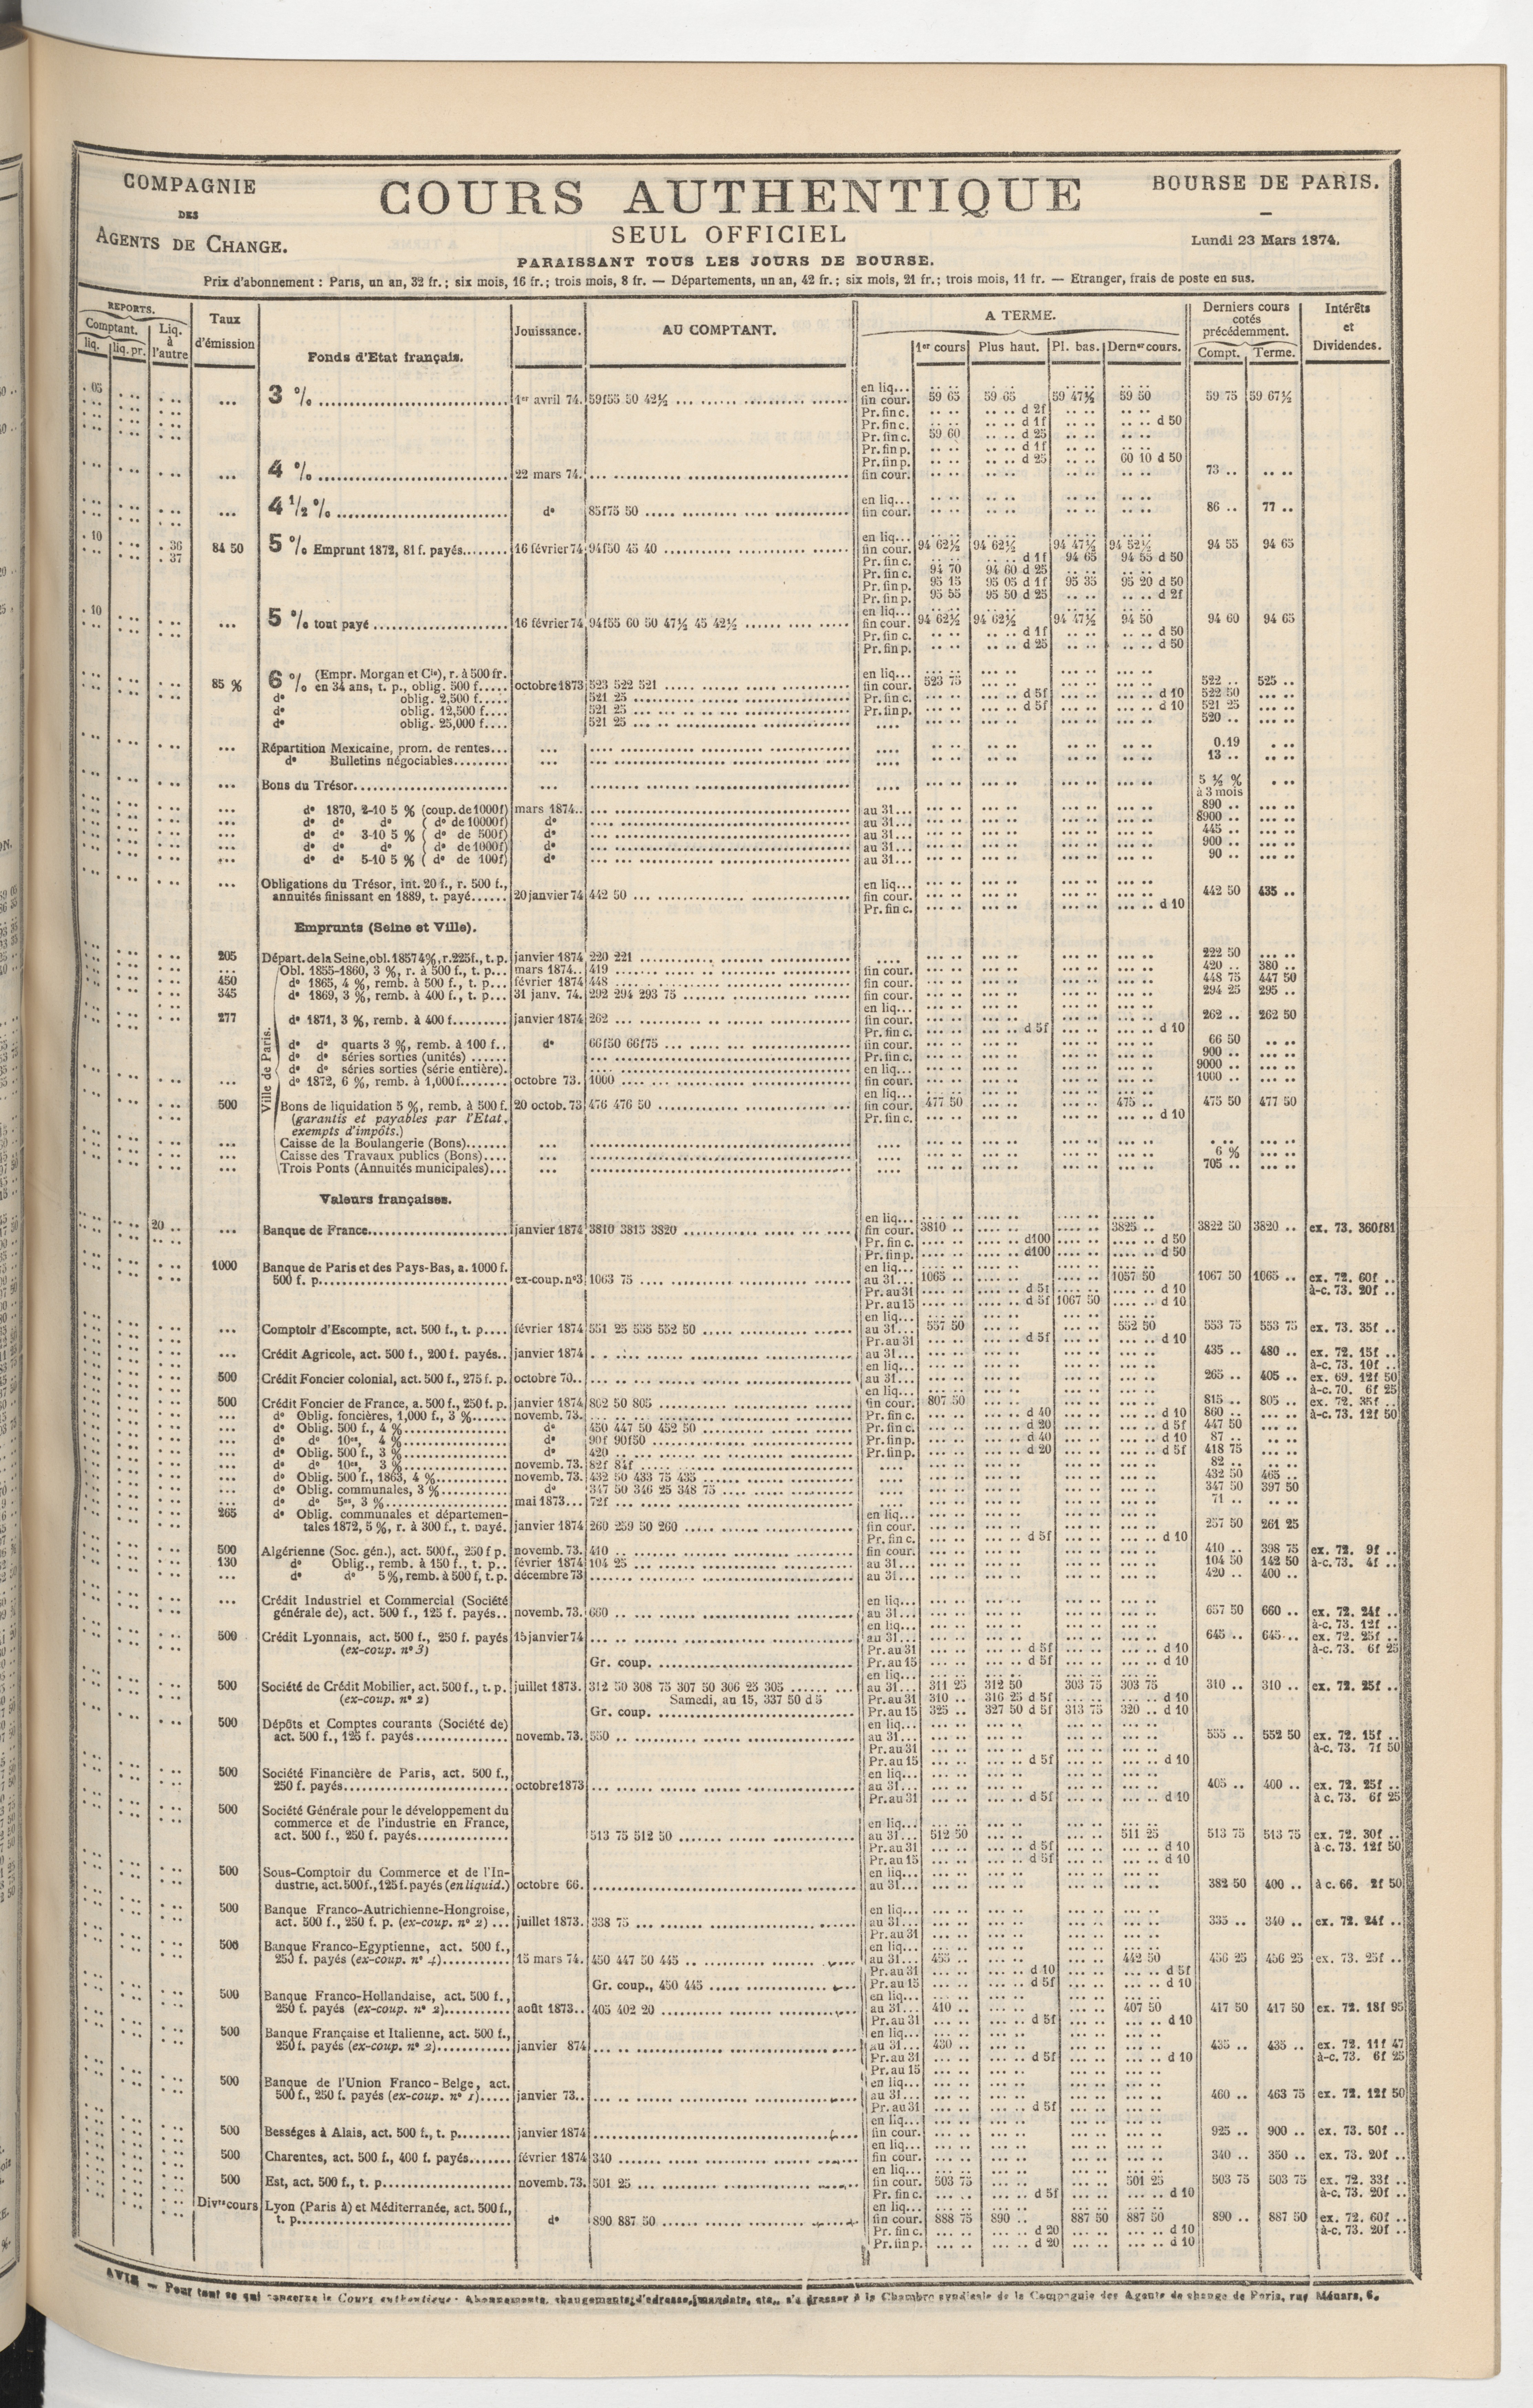 COMPAGNIE
DES
AGENTS DE CHANGE.
COURS AUTHENTIQUE
SEUL OFFICIEL
PARAISSANT TOUS LES JOURS DE BOURSE.
BOURSE DE PARIS.
Lundi 23 Mars 1874.
Prix d'abonnement : Paris, un an, 32 fr.; six mois, 16 fr.; trois mois, 8 fr. — Départements, un an, 42 fr.; six mois, 21 fr.; trois mois, 11 fr. — Etranger, frais de poste en sus.
REPORTS.
Comptant. Liq. à l'autre
liq. liq. pr.
Taux d'émission
Fonds d'Etat français.
Jouissance.
AU COMPTANT.
A TERME.
1er cours Plus haut. Pl. bas. Dernier cours.
Derniers cours cotés précédemment.
Compt. Terme.
Intérêts et Dividendes.
. 05 3 % 1er avril 74. 59f55 50 42½ en liq...
fin cour. 59 65 59 65 59 47½ 59 50 59 75 59 67½
Pr. fin c. d 2f
Pr. fin c. d 1f d 50
Pr. fin c. 59 60 d 25
Pr. fin p. d 1f
Pr. fin p. d 25 60 10 d 50
4 % 22 mars 74. fin cour. 73 ..
4 ½ % dº 85f75 50 en liq... fin cour. 86 .. 77 ..
. 10 . 36 . 37 84 50 5 % Emprunt 1872, 81 f. payés 16 février 74 94f50 45 40 en liq...
fin cour. 94 62½ 94 62½ 94 47½ 94 52½ 94 55 94 65
Pr. fin c. d 1f 94 65 94 55 d 50
Pr. fin c. 94 70 94 60 d 25
Pr. fin p. 95 15 95 05 d 1f 95 35 95 20 d 50
Pr. fin p. 95 55 95 50 d 25 d 2f
. 10 5 % tout payé 16 février 74 94f55 60 50 47½ 45 42½ en liq...
fin cour. 94 62½ 94 62½ 94 47½ 94 50 94 60 94 65
Pr. fin c. d 1f d 50
Pr. fin p. d 25 d 50
85 % 6 % (Empr. Morgan et Cie), r. à 500 fr. en liq...
en 34 ans, t. p., oblig. 500 f. octobre 1873 523 522 521 fin cour. 523 75 522 .. 525 ..
dº oblig. 2,500 f. 521 25 Pr. fin c. d 5f d 10 522 50
dº oblig. 12,500 f. 521 25 Pr. fin p. d 5f d 10 521 25
dº oblig. 25,000 f. 521 25 520 ..
Répartition Mexicaine, prom. de rentes 0.19
dº Bulletins négociables 13 ..
Bons du Trésor 5 ½ % à 3 mois
dº 1870, 2-10 5 % (coup. de 1000f) mars 1874.. au 31... 890 ..
dº dº dº (dº de 10000f) dº au 31... 8900 ..
dº dº 3-10 5 % (dº de 500f) dº au 31... 445 ..
dº dº dº (dº de 1000f) dº au 31... 900 ..
dº dº 5-10 5 % (dº de 100f) dº au 31... 90 ..
Obligations du Trésor, int. 20 f., r. 500 f., en liq...
annuités finissant en 1889, t. payé 20 janvier 74 442 50 fin cour. 442 50 435 ..
Pr. fin c. d 10
Emprunts (Seine et Ville).
205 Départ. de la Seine, obl. 1857 4%, r. 225f., t. p. janvier 1874 220 221 222 50
Ville de Paris.
Obl. 1855-1860, 3 %, r. à 500 f., t. p. mars 1874.. 419 fin cour. 420 .. 380 ..
450 dº 1865, 4 %, remb. à 500 f., t. p. février 1874 448 fin cour. 448 75 447 50
345 dº 1869, 3 %, remb. à 400 f., t. p. 31 janv. 74. 292 294 293 75 fin cour. 294 25 295 ..
en liq...
277 dº 1871, 3 %, remb. à 400 f. janvier 1874 262 fin cour. 262 .. 262 50
Pr. fin c. d 5f d 10
dº dº quarts 3 %, remb. à 100 f. dº 66f50 66f75 fin cour. 66 50
dº dº séries sorties (unités) Pr. fin c. 900 ..
dº dº séries sorties (série entière). en liq... 9000 ..
dº 1872, 6 %, remb. à 1,000 f. octobre 73. 1000 fin cour. 1000 ..
en liq...
500 Bons de liquidation 5 %, remb. à 500 f. 20 octob. 73 476 476 50 fin cour. 477 50 475 .. 475 50 477 50
(garantis et payables par l'Etat, Pr. fin c. d 10
exempts d'impôts.)
Caisse de la Boulangerie (Bons)
Caisse des Travaux publics (Bons) 6 %
Trois Ponts (Annuités municipales) 705 ..
Valeurs françaises.
en liq...
20 .. Banque de France janvier 1874 3810 3815 3820 fin cour. 3810 .. 3825 .. 3822 50 3820 .. ex. 73. 360f81
Pr. fin c. d100 d 50
Pr. fin p. d100 d 50
1000 Banque de Paris et des Pays-Bas, a. 1000 f. en liq...
500 f. p. ex-coup. nº3 1063 75 au 31... 1065 .. 1057 50 1067 50 1065 .. ex. 72. 60f ..
Pr. au 31 d 5f d 10 à-c. 73. 20f ..
Pr. au 15 d 5f 1067 50 d 10
en liq...
Comptoir d'Escompte, act. 500 f., t. p. février 1874 551 25 555 552 50 au 31... 557 50 552 50 553 75 553 75 ex. 73. 35f ..
Pr. au 31 d 5f d 10
Crédit Agricole, act. 500 f., 200 f. payés janvier 1874 au 31... 435 .. 480 .. ex. 72. 15f ..
en liq... à-c. 73. 10f ..
500 Crédit Foncier colonial, act. 500 f., 275 f. p. octobre 70.. au 31... 265 .. 405 .. ex. 69. 12f 50
en liq... à-c. 70. 6f 25
500 Crédit Foncier de France, a. 500 f., 250 f. p. janvier 1874 802 50 805 fin cour. 807 50 815 .. 805 .. ex. 72. 35f ..
dº Oblig. foncières, 1,000 f., 3 % novemb. 73. Pr. fin c. d 40 d 10 860 .. à-c. 73. 12f 50
dº Oblig. 500 f., 4 % dº 450 447 50 452 50 Pr. fin c. d 20 d 5f 447 50
dº dº 10es, 4 % dº 90f 90f50 Pr. fin p. d 40 d 10 87 ..
dº Oblig. 500 f., 3 % dº 420 Pr. fin p. d 20 d 5f 418 75
dº dº 10es, 3 % novemb. 73. 82f 84f 82 ..
dº Oblig. 500 f., 1863, 4 % novemb. 73. 432 50 433 75 435 432 50 465 ..
dº Oblig. communales, 3 % dº 347 50 346 25 348 75 347 50 397 50
dº dº 5es, 3 % mai 1873... 72f 71 ..
265 dº Oblig. communales et départemen- en liq...
tales 1872, 5 %, r. à 300 f., t. payé. janvier 1874 260 259 50 260 fin cour. 257 50 261 25
Pr. fin c. d 5f d 10
500 Algérienne (Soc. gén.), act. 500 f., 250 f p. novemb. 73. 410 fin cour. 410 .. 398 75 ex. 72. 9f ..
130 dº Oblig., remb. à 150 f., t. p. février 1874 104 25 au 31... 104 50 142 50 à-c. 73. 4f ..
dº dº 5 %, remb. à 500 f, t. p. décembre 73 au 31... 420 .. 400 ..
Crédit Industriel et Commercial (Société en liq...
générale de), act. 500 f., 125 f. payés novemb. 73. 660 au 31... 657 50 660 .. ex. 72. 24f ..
en liq... à-c. 73. 12f ..
500 Crédit Lyonnais, act. 500 f., 250 f. payés 15 janvier 74 au 31... 645 .. 645 .. ex. 72. 25f ..
(ex-coup. nº 3) Pr. au 31 d 5f d 10 à-c. 73. 6f 25
Gr. coup. Pr. au 15 d 5f d 10
en liq...
500 Société de Crédit Mobilier, act. 500 f., t. p. juillet 1873. 312 50 308 75 307 50 306 25 305 au 31... 311 25 312 50 303 75 303 75 310 .. 310 .. ex. 72. 25f ..
(ex-coup. nº 2) Samedi, au 15, 337 50 d 5 Pr. au 31 310 .. 316 25 d 5f d 10
Gr. coup. Pr. au 15 325 .. 327 50 d 5f 313 75 320 .. d 10
500 Dépôts et Comptes courants (Société de) en liq...
act. 500 f., 125 f. payés novemb. 73. 550 au 31... 555 .. 552 50 ex. 72. 15f ..
Pr. au 31 à-c. 73. 7f 50
Pr. au 15 d 5f d 10
500 Société Financière de Paris, act. 500 f., en liq...
250 f. payés octobre 1873 au 31... 405 .. 400 .. ex. 72. 25f ..
Pr. au 31 d 5f d 10 à c. 73. 6f 25
500 Société Générale pour le développement du
commerce et de l'industrie en France, en liq...
act. 500 f., 250 f. payés 513 75 512 50 au 31... 512 50 511 25 513 75 513 75 ex. 72. 30f ..
Pr. au 31 d 5f d 10 à-c. 73. 12f 50
Pr. au 15 d 5f d 10
500 Sous-Comptoir du Commerce et de l'In- en liq...
dustrie, act. 500 f., 125 f. payés (en liquid.) octobre 66. au 31... 382 50 400 .. à c. 66. 2f 50
500 Banque Franco-Autrichienne-Hongroise, en liq...
act. 500 f., 250 f. p. (ex-coup. nº 2) juillet 1873. 338 75 au 31... 335 .. 340 .. ex. 72. 24f ..
Pr. au 31
500 Banque Franco-Egyptienne, act. 500 f., en liq...
250 f. payés (ex-coup. nº 4) 15 mars 74. 450 447 50 445 au 31... 455 442 50 456 25 456 25 ex. 73. 25f ..
Pr. au 31 d 10 d 5f
Gr. coup., 450 445 Pr. au 15 d 5f d 10
500 Banque Franco-Hollandaise, act. 500 f., en liq...
250 f. payés (ex-coup. nº 2) août 1873.. 405 402 20 au 31... 410 .. 407 50 417 50 417 50 ex. 72. 18f 95
Pr. au 31 d 5f d 10
500 Banque Française et Italienne, act. 500 f., en liq...
250 f. payés (ex-coup. nº 2) janvier 874 au 31... 430 .. 435 .. 435 .. ex. 72. 11f 47
Pr. au 31 d 5f d 10 à-c. 73. 6f 25
Pr. au 15
500 Banque de l'Union Franco-Belge, act. en liq...
500 f., 250 f. payés (ex-coup. nº 1) janvier 73.. au 31... 460 .. 463 75 ex. 72. 12f 50
Pr. au 31 d 5f
en liq...
500 Bességes à Alais, act. 500 f., t. p. janvier 1874 fin cour. 925 .. 900 .. ex. 73. 50f ..
en liq...
500 Charentes, act. 500 f., 400 f. payés février 1874 340 fin cour. 340 .. 350 .. ex. 73. 20f ..
en liq...
500 Est, act. 500 f., t. p. novemb. 73. 501 25 fin cour. 503 75 501 25 503 75 503 75 ex. 72. 33f ..
Pr. fin c. d 5f d 10 à-c. 73. 20f ..
Divrs cours Lyon (Paris à) et Méditerranée, act. 500 f., en liq...
t. p. dº 890 887 50 fin cour. 888 75 890 .. 887 50 887 50 890 .. 887 50 ex. 72. 60f ..
Pr. fin c. d 20 d 10 à-c. 73. 20f ..
Pr. fin p. d 20 d 10
AVIS — Pour tout ce qui concerne le Cours authentique: Abonnements, changements d'adresse, mandats, etc., s'adresser à la Chambre syndicale de la Compagnie des Agents de change de Paris, rue Ménars, 6.